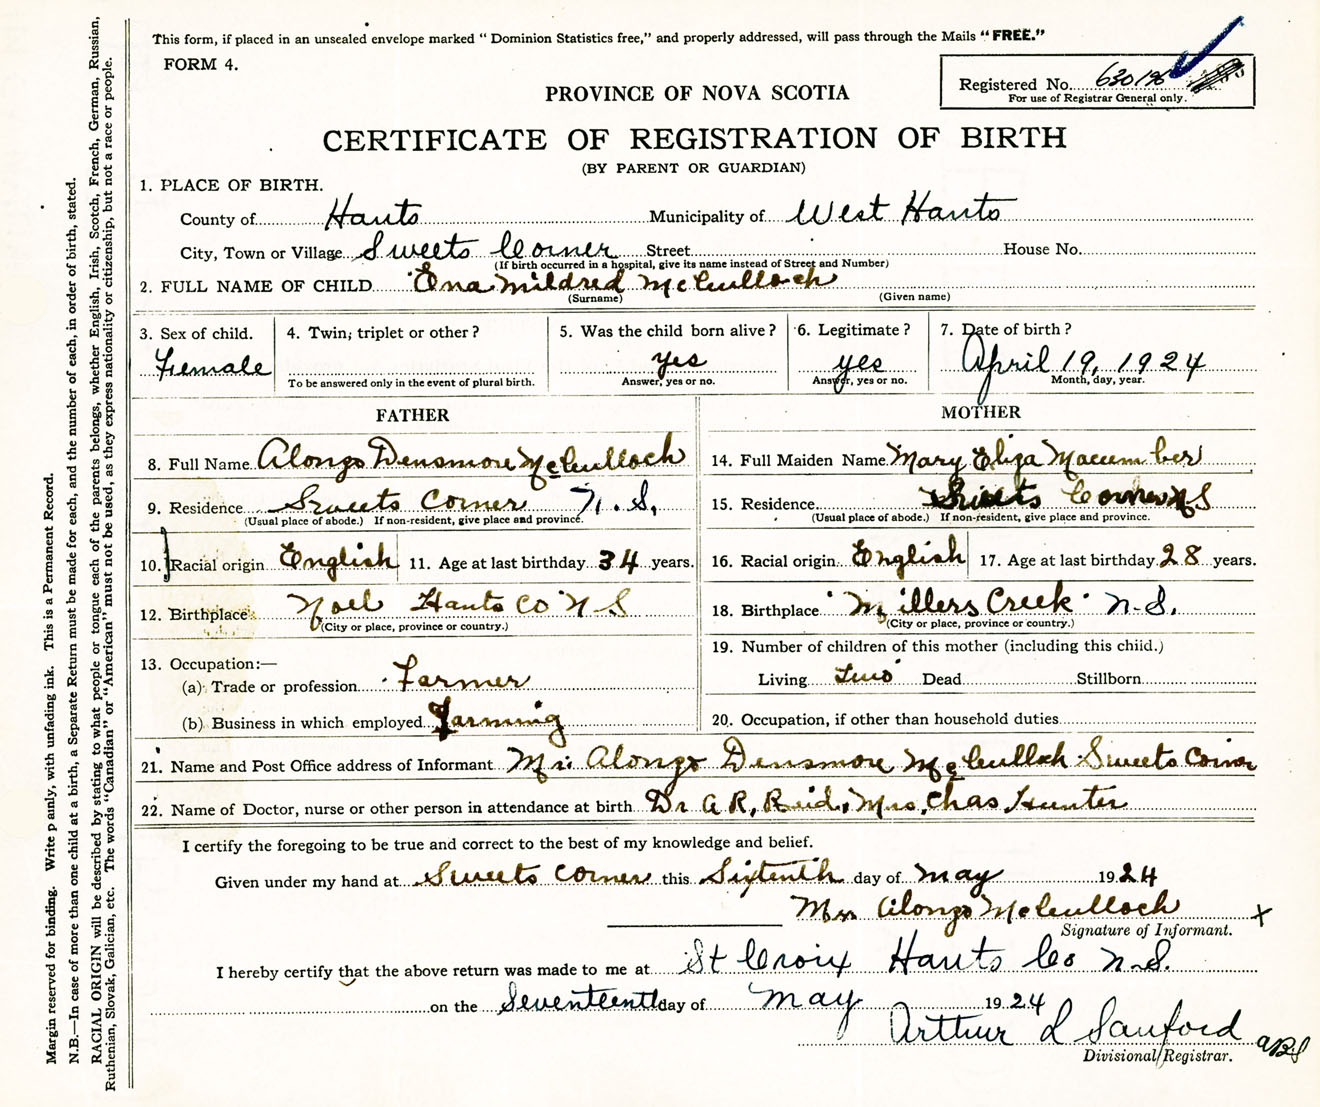 This form, if placed in an unsealed envelope marked " Dominion Statistics free," and properly addressed, will pass through the Mails "FREE."
FORM 4.
Registered No. 630196
For use of Registrar General only.
PROVINCE OF NOVA SCOTIA
CERTIFICATE OF REGISTRATION OF BIRTH
(BY PARENT OR GUARDIAN)
1. PLACE OF BIRTH.
County of Hants Municipality of West Hants
City, Town or Village Sweets Corner Street House No.
(If birth occurred in a hospital, give its name instead of Street and Number)
2. FULL NAME OF CHILD Ena Mildred McCulloch
(Surname) (Given name)
3. Sex of child. 4. Twin; triplet or other? 5. Was the child born alive? 6. Legitimate? 7. Date of birth?
Female yes yes April 19, 1924
To be answered only in the event of plural birth. Answer, yes or no. Answer, yes or no. Month, day, year.
FATHER MOTHER
8. Full Name Alongo Densmore McCulloch 14. Full Maiden Name Mary Eliza Macumber
9. Residence Sweets Corner N.S. 15. Residence Sweets Corner NS
(Usual place of abode.) If non-resident, give place and province. (Usual place of abode.) If non-resident, give place and province.
10. Racial origin English 11. Age at last birthday 34 years. 16. Racial origin English 17. Age at last birthday 28 years.
12. Birthplace Noel Hants Co N S 18. Birthplace Millers Creek N.S.
(City or place, province or country.) (City or place, province or country.)
13. Occupation:— 19. Number of children of this mother (including this child.)
(a) Trade or profession Farmer Living Two Dead Stillborn
(b) Business in which employed Farming 20. Occupation, if other than household duties
21. Name and Post Office address of Informant Mrs Alongo Densmore McCulloch Sweets Corner
22. Name of Doctor, nurse or other person in attendance at birth Dr A R, Reid, Mrs, Chas Hunter
I certify the foregoing to be true and correct to the best of my knowledge and belief.
Given under my hand at Sweets Corner this Sixtenth day of May 1924
Mrs Alongo McCulloch X
Signature of Informant.
I hereby certify that the above return was made to me at St Croix Hants Co N.S.
on the Seventeenth day of May 1924
Arthur L Sanford
Divisional Registrar.
Margin reserved for binding. Write plainly, with unfading ink. This is a Permanent Record.
N.B.—In case of more than one child at a birth, a Separate Return must be made for each, and the number of each, in order of birth, stated.
RACIAL ORIGIN will be described by stating to what people or tongue each of the parents belongs, whether English, Irish, Scotch, French, German, Russian,
Ruthenian, Slovak, Galician, etc. The words "Canadian" or "American" must not be used, as they express nationality or citizenship, but not a race or people.